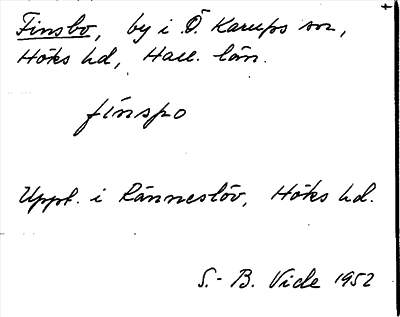 Finsbo, by i Ö. Karups sn,
Höks hd, Hall. län.
finspo
Uppt. i Ränneslöv, Höks hd.
S.-B. Vide 1952